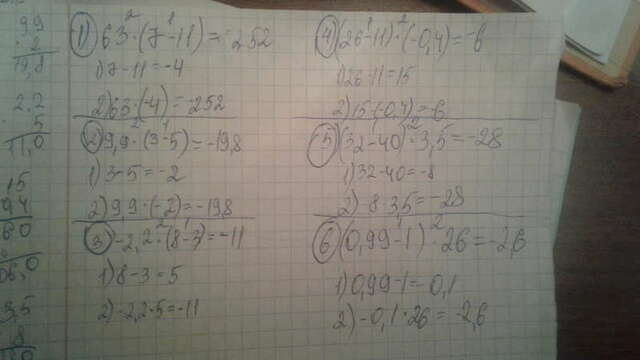 99
2
19,8
2.2
5
11,0
15
94
60
35
8
1) 63·(7-11)=-252
1) 7-11=-4
2) 63·(-4)=-252
2) 9,9·(3-5)=-19,8
1) 3-5=-2
2) 9,9·(-2)=-19,8
3) -2,2·(8-3)=-11
1) 8-3=5
2) -2,2·5=-11
4) (26-11)·(-0,4)=-6
1) 26-11=15
2) 15·(-0,4)=-6
5) (32-40)·3,5=-28
1) 32-40=-8
2) -8·3,5=-28
6) (0,99-1)·26=-2,6
1) 0,99-1=-0,1
2) -0,1·26=-2,6